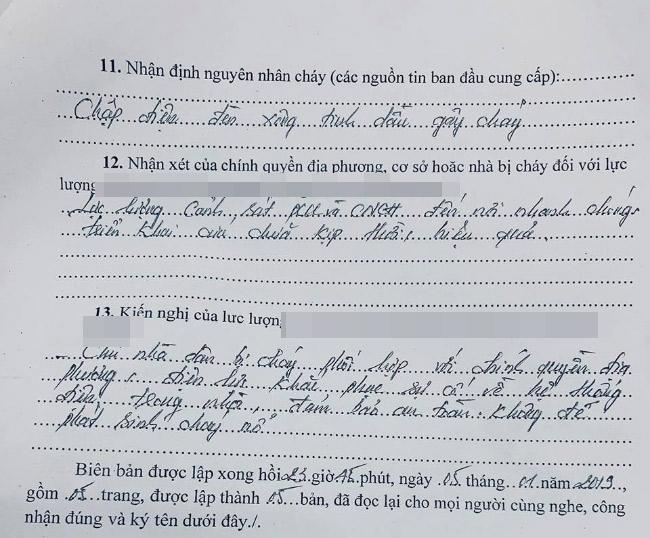 11. Nhận định nguyên nhân cháy (các nguồn tin ban đầu cung cấp):
Chập điện đèn xông tinh dầu gây cháy
12. Nhận xét của chính quyền địa phương, cơ sở hoặc nhà bị cháy đối với lực
lượng
Lực lượng Cảnh sát PCCC và CNCH đến nơi nhanh chóng
triển khai cứu chữa kịp thời, hiệu quả.
13. Kiến nghị của lực lượng
Chủ nhà dân bị cháy phối hợp với chính quyền địa
phương, điện lực khắc phục sự cố về hệ thống
điện trong nhà, đảm bảo an toàn. không để
phát sinh cháy nổ.
Biên bản được lập xong hồi 23 giờ 45 phút, ngày 05 tháng 01 năm 2019,
gồm 05 trang, được lập thành 05 bản, đã đọc lại cho mọi người cùng nghe, công
nhận đúng và ký tên dưới đây./.